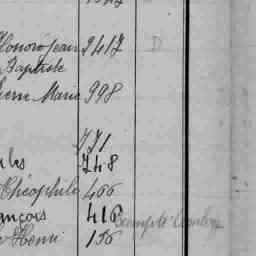 Honoré Jean 2417 D
Baptiste
Pierre Marie 998
771
les 748
Théophile 466
ançois 416
Henri 156